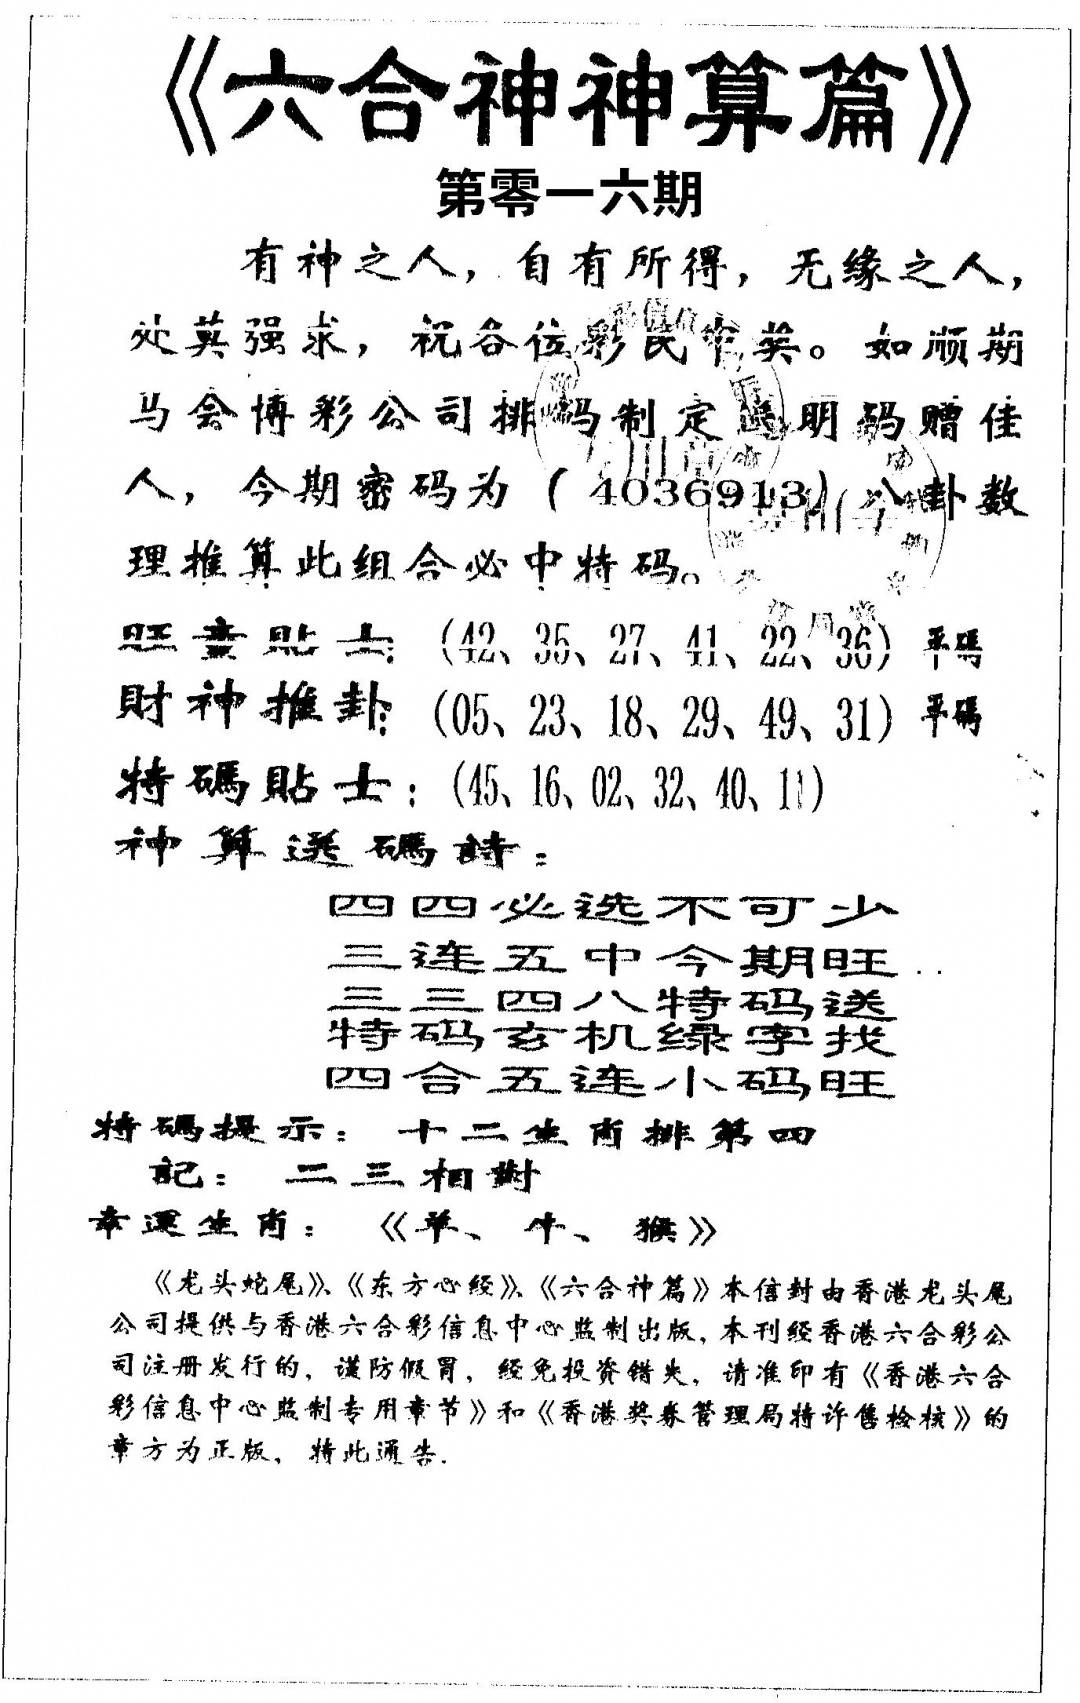 《六合神神算篇》
第零一六期
有神之人，自有所得，无缘之人，
处莫强求，祝各位彩民中奖。如顺期
马会博彩公司排码制定透明码赠佳
人，今期密码为（4036913）八卦数
理推算此组合必中特码。
旺童貼士：（42、35、27、41、22、36）平碼
財神推卦：（05、23、18、29、49、31）平碼
特碼貼士：（45、16、02、32、40、11）
神算送碼詩：
四四必选不可少
三连五中今期旺
三三四八特码送
特码玄机绿字找
四合五连小码旺
特碼提示：十二生肖排第四
記：二三相對
幸運生肖：《羊、牛、猴》
《龙头蛇尾》、《东方心经》、《六合神篇》本信封由香港龙头尾
公司提供与香港六合彩信息中心监制出版，本刊经香港六合彩公
司注册发行的，谨防假冒，经免投资错失，请准印有《香港六合
彩信息中心监制专用章节》和《香港奖券管理局特许售检核》的
章方为正版，特此通告.